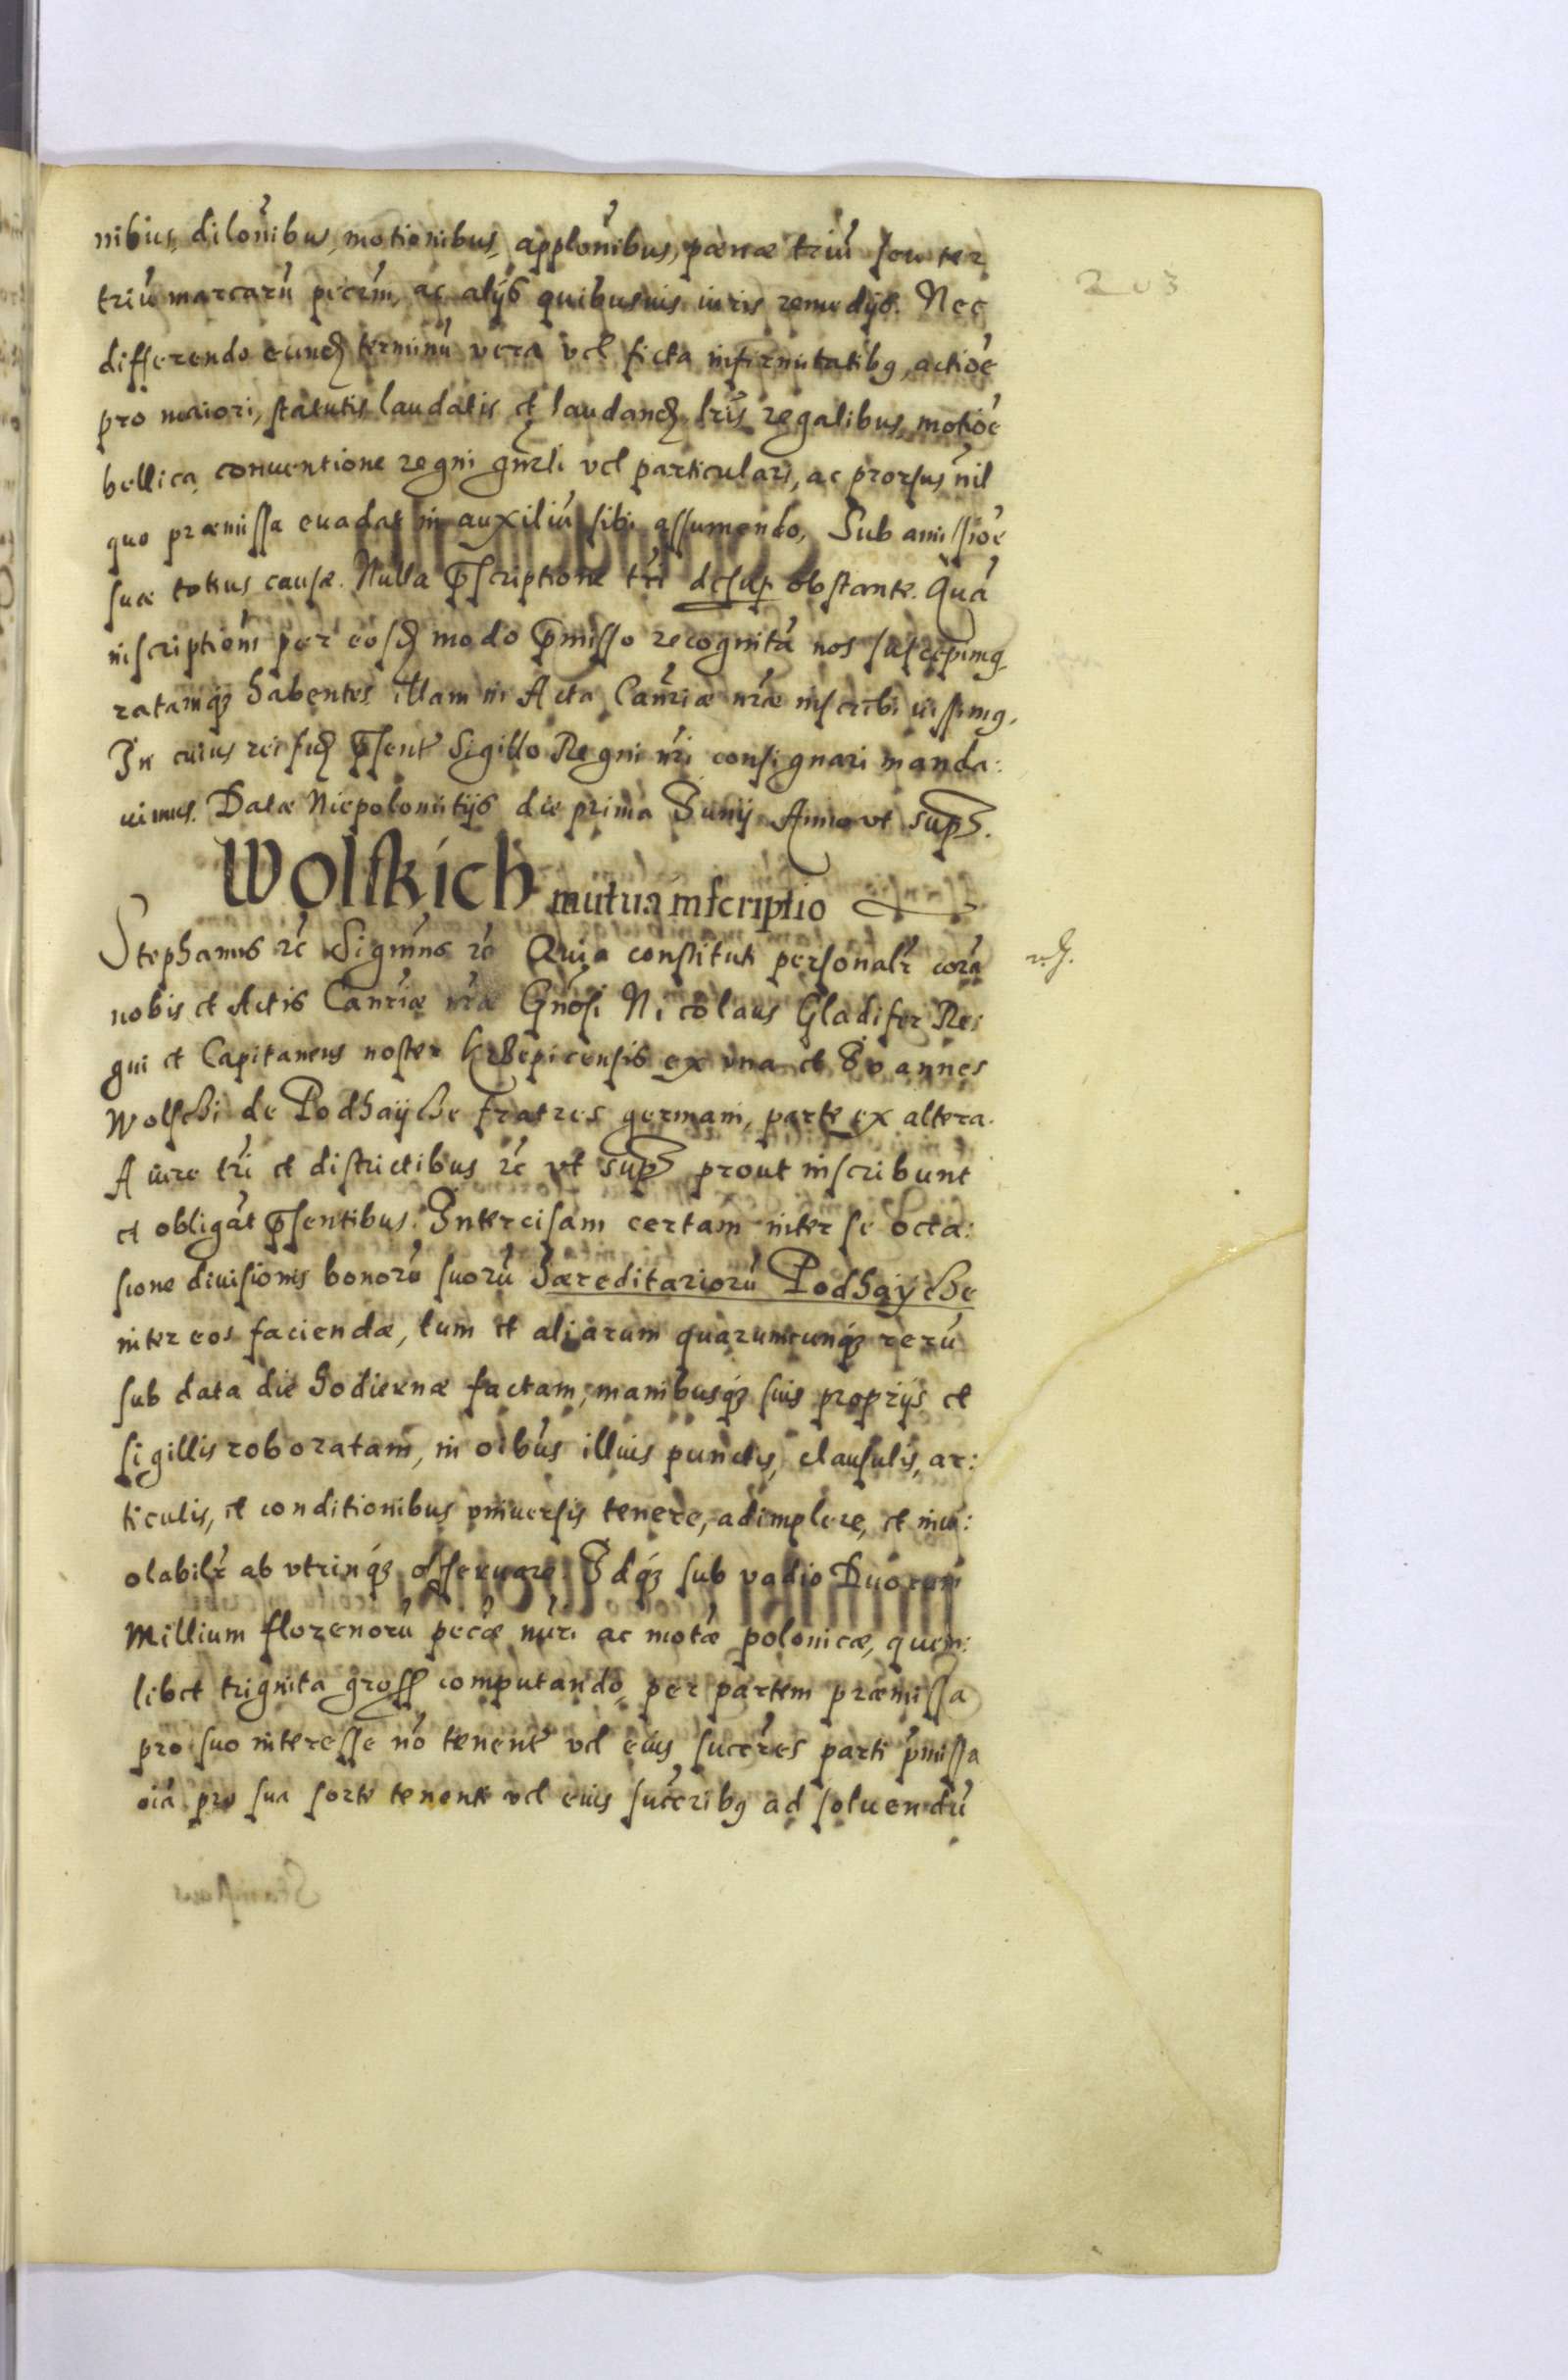 203
nibus, dilõnibus, motionibus, applõnibus, pœnæ triũ seu ter
triũ marcarũ peccñ, ac alijs quibusuis iuris remedijs. Nec
differendo eund terminũ vera vel ficta infirmitatibq, actiõe
pro maiori, statutis laudatis et laudand, lris regalibus, motiõe
bellica, conuentione regni gnrli vel particulari, ac prorsus nil
quo præmissa euadat in auxiliũ sibi assumendo, Sub amissiõe
suæ totius causæ. Nulla pscriptione tri desup obstante. Quã
inscriptioñ per eosd modo pmisso recognitã nos suscepimq,
ratamq habentes illam in Acta Cancriæ nræ inscribi iussimq.
In cuius rei fid psent Sigillo Regni nri consignari manda:
uimus. Datæ Niepolomitijs die prima Junij Anno vt sup.
Wolskich mutua inscriptio
Stephanus rc Significamus rc Quia constituti personalr corã
nobis et Actis Cancriæ nræ Gñosi Nicolaus Gladifer Re:
gni et Capitaneus noster Krzepicensis ex vna et Joannes
Wolschi de Podhaÿche fratres germani, parte ex altera.
A iure tri et districtibus rc vt sup prout inscribunt
et obligãt psentibus. Intercisam certam inter se occa:
sione diuisionis bonorũ suorũ hæreditariorũ Podhaÿche
inter eos faciendæ, tum et aliarum quarumcunq rerũ
sub data die hodiernæ factam, manibusq suis proprijs et
sigillis roboratam, in oibus illius punctis, clausulis, ar:
ticulis, et conditionibus vniuersis tenere, adimplere, et inui:
olabilr ab vtrinq obseruare. Idq sub vadio Duorum
Millium florenorũ peccæ nũri ac motæ polonicæ, quem:
libet triginta gross computando, per partem præmissa
pro suo interesse nõ tenent vel eius succres parti pmissa
oia pro sua sorte tenenti vel eius succribq ad soluendũ